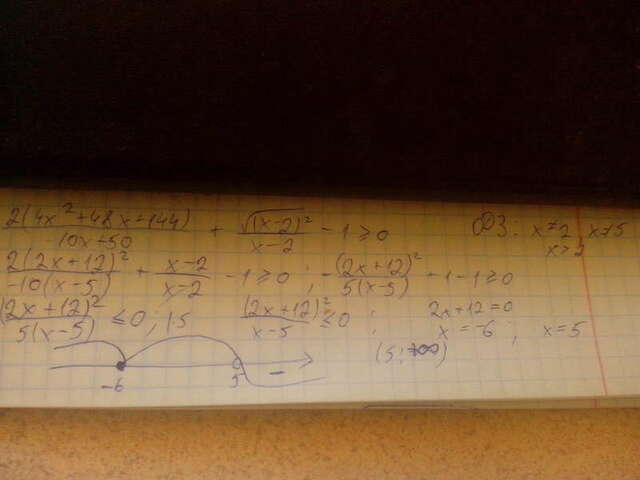 2(4x²+48x+144)/(-10x+50) + √(x-2)²/(x-2) - 1 ≥ 0   ОДЗ: x≠2 x≠5
x>2
2(2x+12)²/(-10(x-5)) + (x-2)/(x-2) - 1 ≥ 0 ; -(2x+12)²/(5(x-5)) + 1 - 1 ≥ 0
(2x+12)²/(5(x-5)) ≤ 0 ; |·5 (2x+12)²/(x-5) ≤ 0 ; 2x+12=0
x = -6 ; x=5
(5;+∞)
-6 5 -